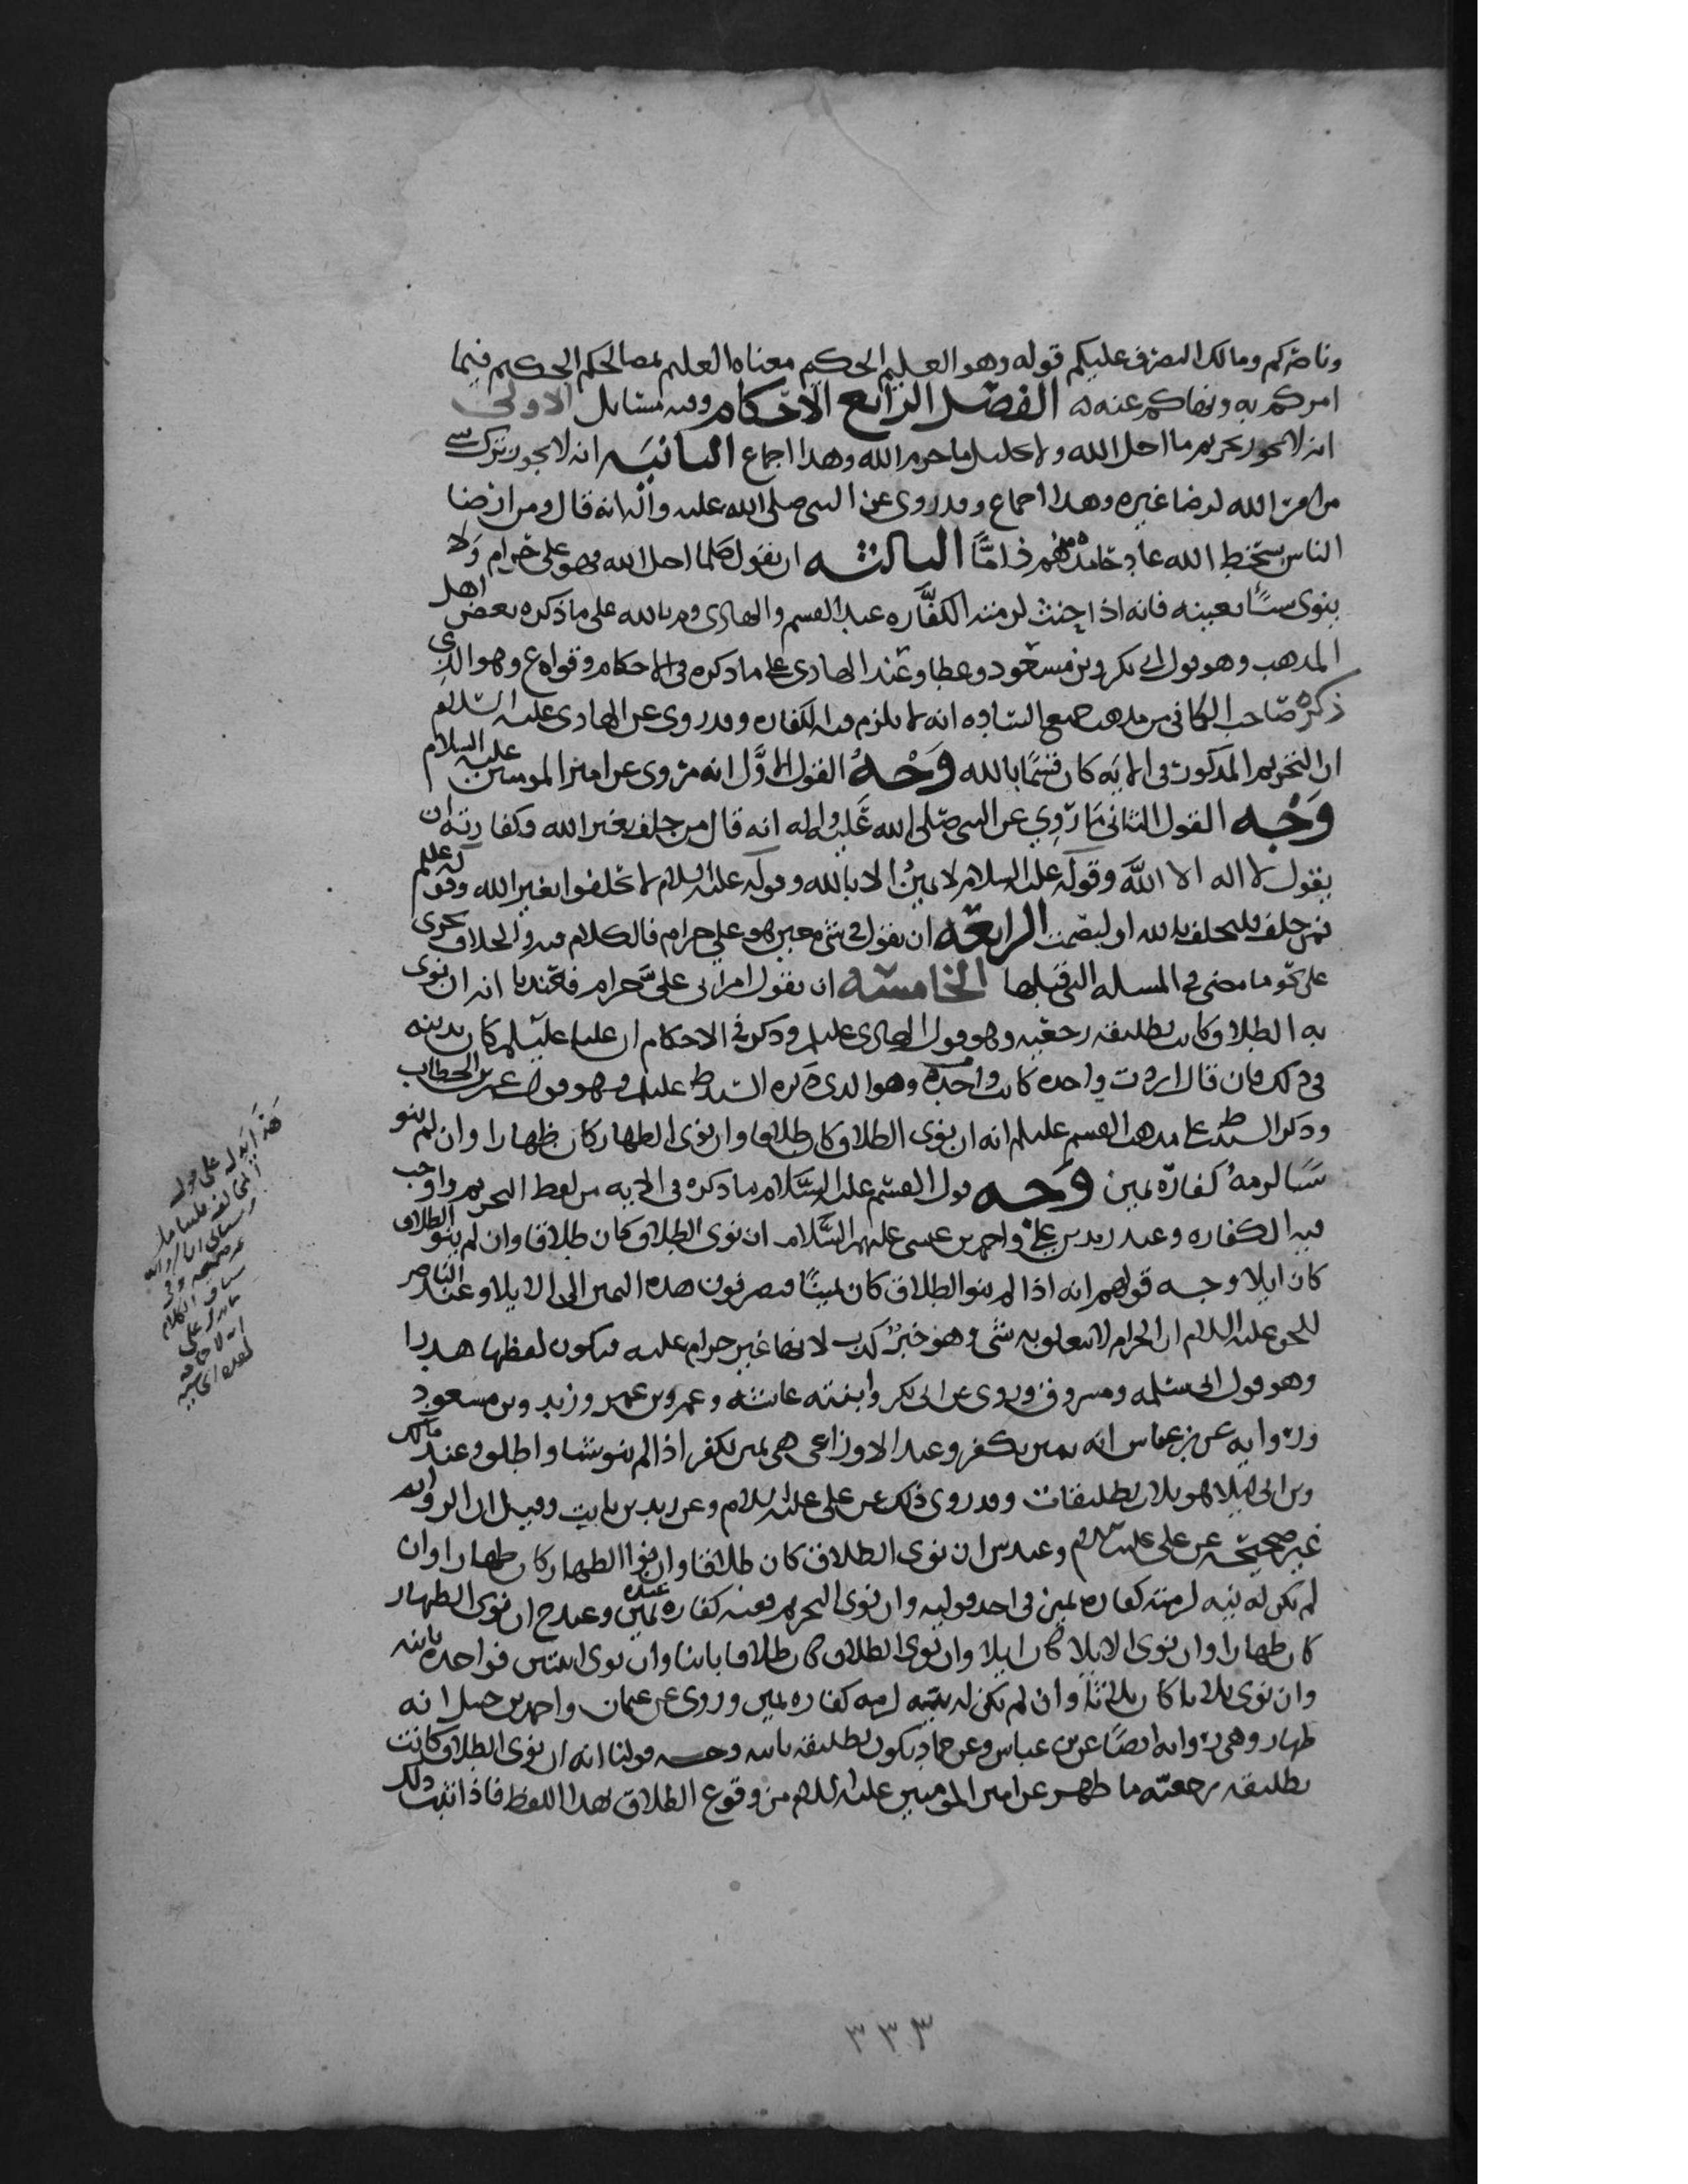 وناصركم ومالك التصرف عليكم قوله وهو العليم الحكيم معناه العليم بمصالحكم الحكيم فيما
امركم به ونهاكم عنه الفصل الرابع الاحكام وفيه مسايل الاولى
انه لا يجوز تحريم ما احل الله ولا تحليل ما حرم الله وهذا اجماع الثانيه انه لا يجوز ترك شي
من امر الله لرضا غيره وهذا اجماع وقد روي عن النبي صلى الله عليه واله انه قال ومن ارضا
الناس بسخط الله عاد حامده منهم ذاما الثالثه ان يقول كلما احل الله فهو علي حرام ولا
ينوي شيئا بعينه فانه اذا حنث لزمته الكفاره عند القسم والهادي وم بالله على ما ذكره بعض اهل
المذهب وهو قول ابي بكر وبن مسعود وعطا وعند الهادي على ما ذكره في الاحكام وقواه ع وهو الذي
ذكره صاحب الكافي من مذهب جميع الساده انه لا يلزم فيه الكفاره وقد روي عن الهادي عليه السلام
ان التحريم المذكور في الايه كان قسما بالله وجه القول الاول انه مروي عن امير المومنين عليه السلام
وجه القول الثاني ما روي عن النبي صلى الله عليه واله انه قال من حلف بغير الله فكفارته ان
يقول لا اله الا الله وقوله عليه السلام لا يمين الا بالله وقوله عليه السلام لا تحلفوا بغير الله وقوله علم
فمن حلف فليحلف بالله او ليصمت الرابعه ان يقول في شي معين هو علي حرام فالكلام فيه والخلاف يجري
على نحو ما مضى في المسله التي قبلها الخامسه ان يقول امراتي علي حرام فعندنا انه ان نوى
به الطلاق كانت تطليقه رجعيه وهو قول الهادي عليلم وذكر في الاحكام ان عليا عليلم كان يدينه
في ذلك فان قال اردت واحده كانت واحده وهو الذي ذكره السيد ط عليلم وهو قول عمر بن الخطاب
وذكر السيد ط على مذهب القسم عليلم انه ان نوى الطلاق كان طلاقا وان نوى الظهار كان ظهارا وان لم ينو
شيا لزمه كفارة يمين وجه قول القسم عليه السلام ما ذكره في الايه من لفظ التحريم واوجب
فيه الكفاره وعند زيد بن علي واحمد بن عيسى عليهم السلام ان نوى الطلاق كان طلاقا وان لم ينو الطلاق
كان ايلا وجه قولهم انه اذا لم ينو الطلاق كان يمينا فيصرفون هذه اليمين الى الايلا وعند الناصر
للحق عليه السلام ان الحرام لا يتعلق به شي وهو خبر كذب لانها غير حرام عليه فيكون لفظها هدرا
وهو قول ابي سلمه ومسروق وروي عن ابي بكر وابنته عائشه وعمر وبن عمر وزيد وبن مسعود
وروايه عن بن عباس انه يمين يكفر وعند الاوزاعي هي يمين تكفر اذا لم ينو شيا واطلق وعند مالك
وبن ابي ليلا هو ثلاث تطليقات وقد روي ذلك عن علي عليه السلام وعن زيد بن ثابت وقيل ان الروايه
غير صحيحه عن علي عليه سلام وعند ش ان نوى الطلاق كان طلاقا وان نوا الظهار كان ظهارا وان
لم تكن له نيه لزمته كفاره يمين في احد قوليه وان نوى التحريم فعنه كفاره يمين عنده وعند ح ان نوى الظهار
كان ظهارا وان نوى الايلا كان ايلا وان نوى الطلاق كان طلاقا باينا وان نوى اثنتين فواحده باينه
وان نوى ثلاثا كان ثلاثا وان لم تكن له نيه لزمه كفاره يمين وروي عن عثمان واحمد بن حنبل انه
ظهار وهي روايه ايضا عن بن عباس وعن حماد يكون تطليقه باينه وجه قولنا انه ان نوى الطلاق كانت
تطليقه رجعيه ما ظهر عن امير المومنين عليه السلام من وقوع الطلاق بهذا اللفظ فاذا ثبت ذلك
هذا يدل على
٣٣٣